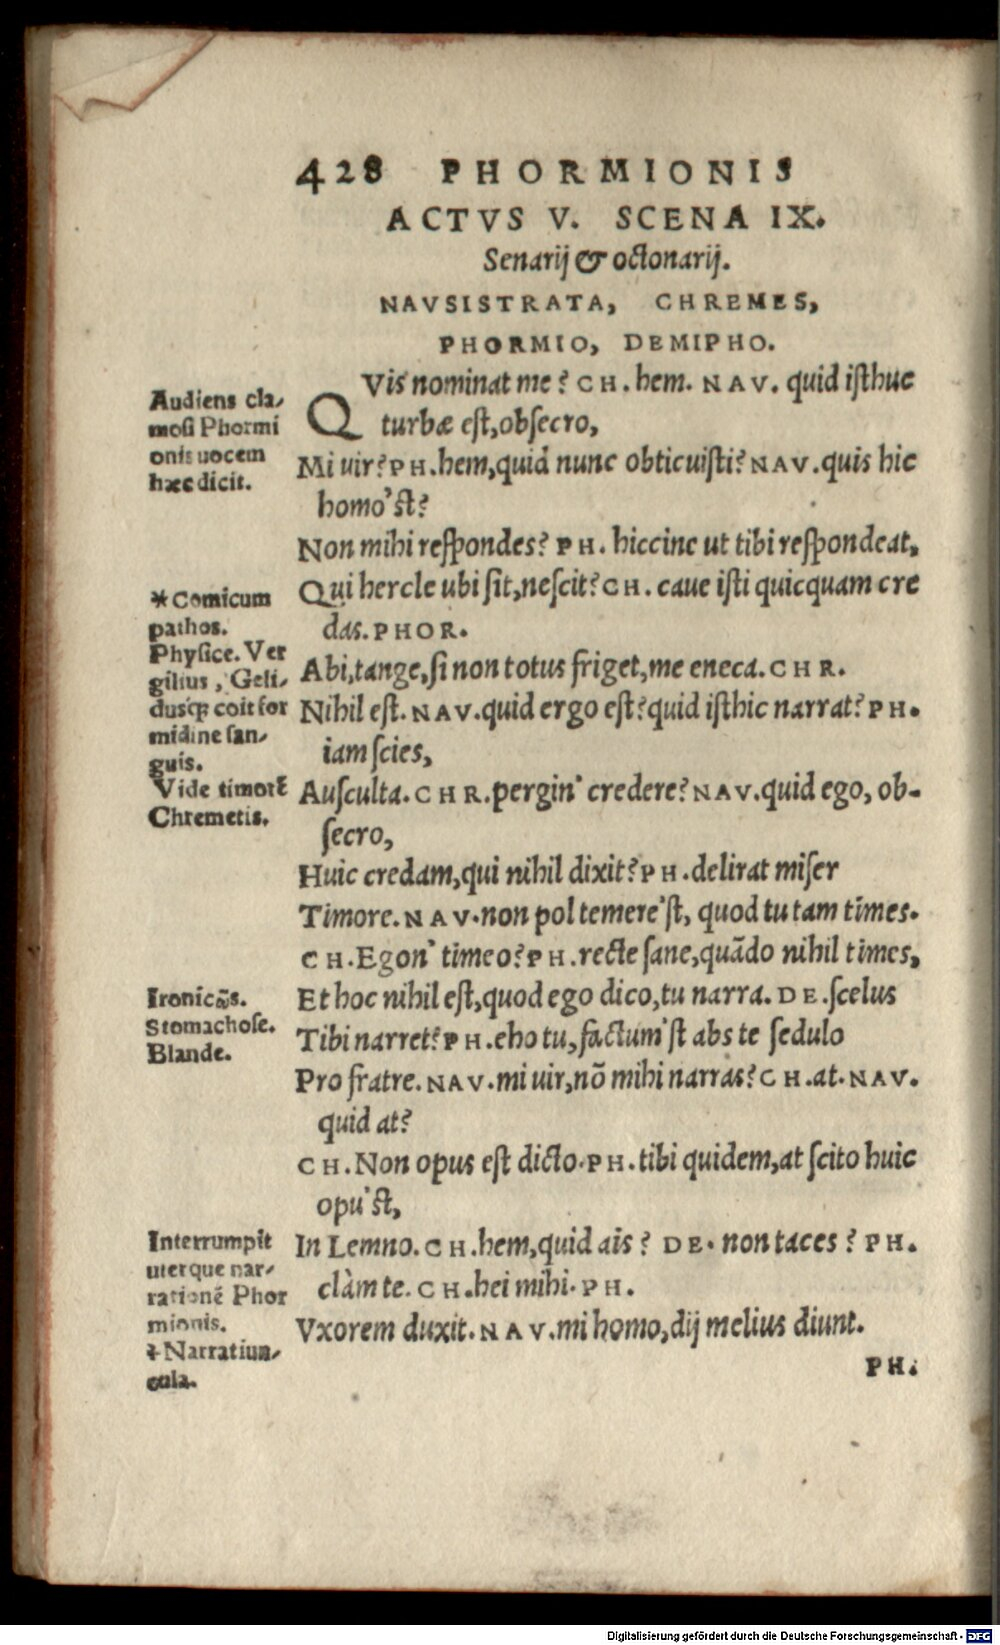 428 PHORMIONIS
ACTVS V. SCENA IX.
Senarij & octonarij.
NAVSISTRATA, CHREMES,
PHORMIO, DEMIPHO.
QVis nominat me? CH. hem. NAV. quid isthuc
turbæ est, obsecro,
Mi uir? PH. hem, quid nunc obticuisti? NAV. quis hic
homo'st?
Non mihi respondes? PH. hiccine ut tibi respondeat,
Qui hercle ubi sit, nescit? CH. caue isti quicquam cre
das. PHOR.
Abi, tange, si non totus friget, me eneca. CHR.
Nihil est. NAV. quid ergo est? quid isthic narrat? PH.
iam scies,
Ausculta. CHR. pergin' credere? NAV. quid ego, ob-
secro,
Huic credam, qui nihil dixit? PH. delirat miser
Timore. NAV. non pol temere'st, quod tu tam times.
CH. Egon' timeo? PH. recte sane, quādo nihil times,
Et hoc nihil est, quod ego dico, tu narra. DE. scelus
Tibi narret? PH. eho tu, factum'st abs te sedulo
Pro fratre. NAV. mi uir, nō mihi narras? CH. at. NAV.
quid at?
CH. Non opus est dicto. PH. tibi quidem, at scito huic
opu'st,
In Lemno. CH. hem, quid ais? DE. non taces? PH.
clàm te. CH. hei mihi. PH.
Vxorem duxit. NAV. mi homo, dij melius diunt.
PH.
Audiens cla-
mosi Phormi
onis uocem
hæc dicit.
*Comicum
pathos.
Physice. Ver
gilius, Geli-
dusq; coit for
midine san-
guis.
Vide timorē
Chremetis.
Ironicῶs.
Stomachose.
Blande.
Interrumpit
uterque nar-
rationē Phor
mionis.
+Narratiun-
cula.
Digitalisierung gefördert durch die Deutsche Forschungsgemeinschaft - DFG